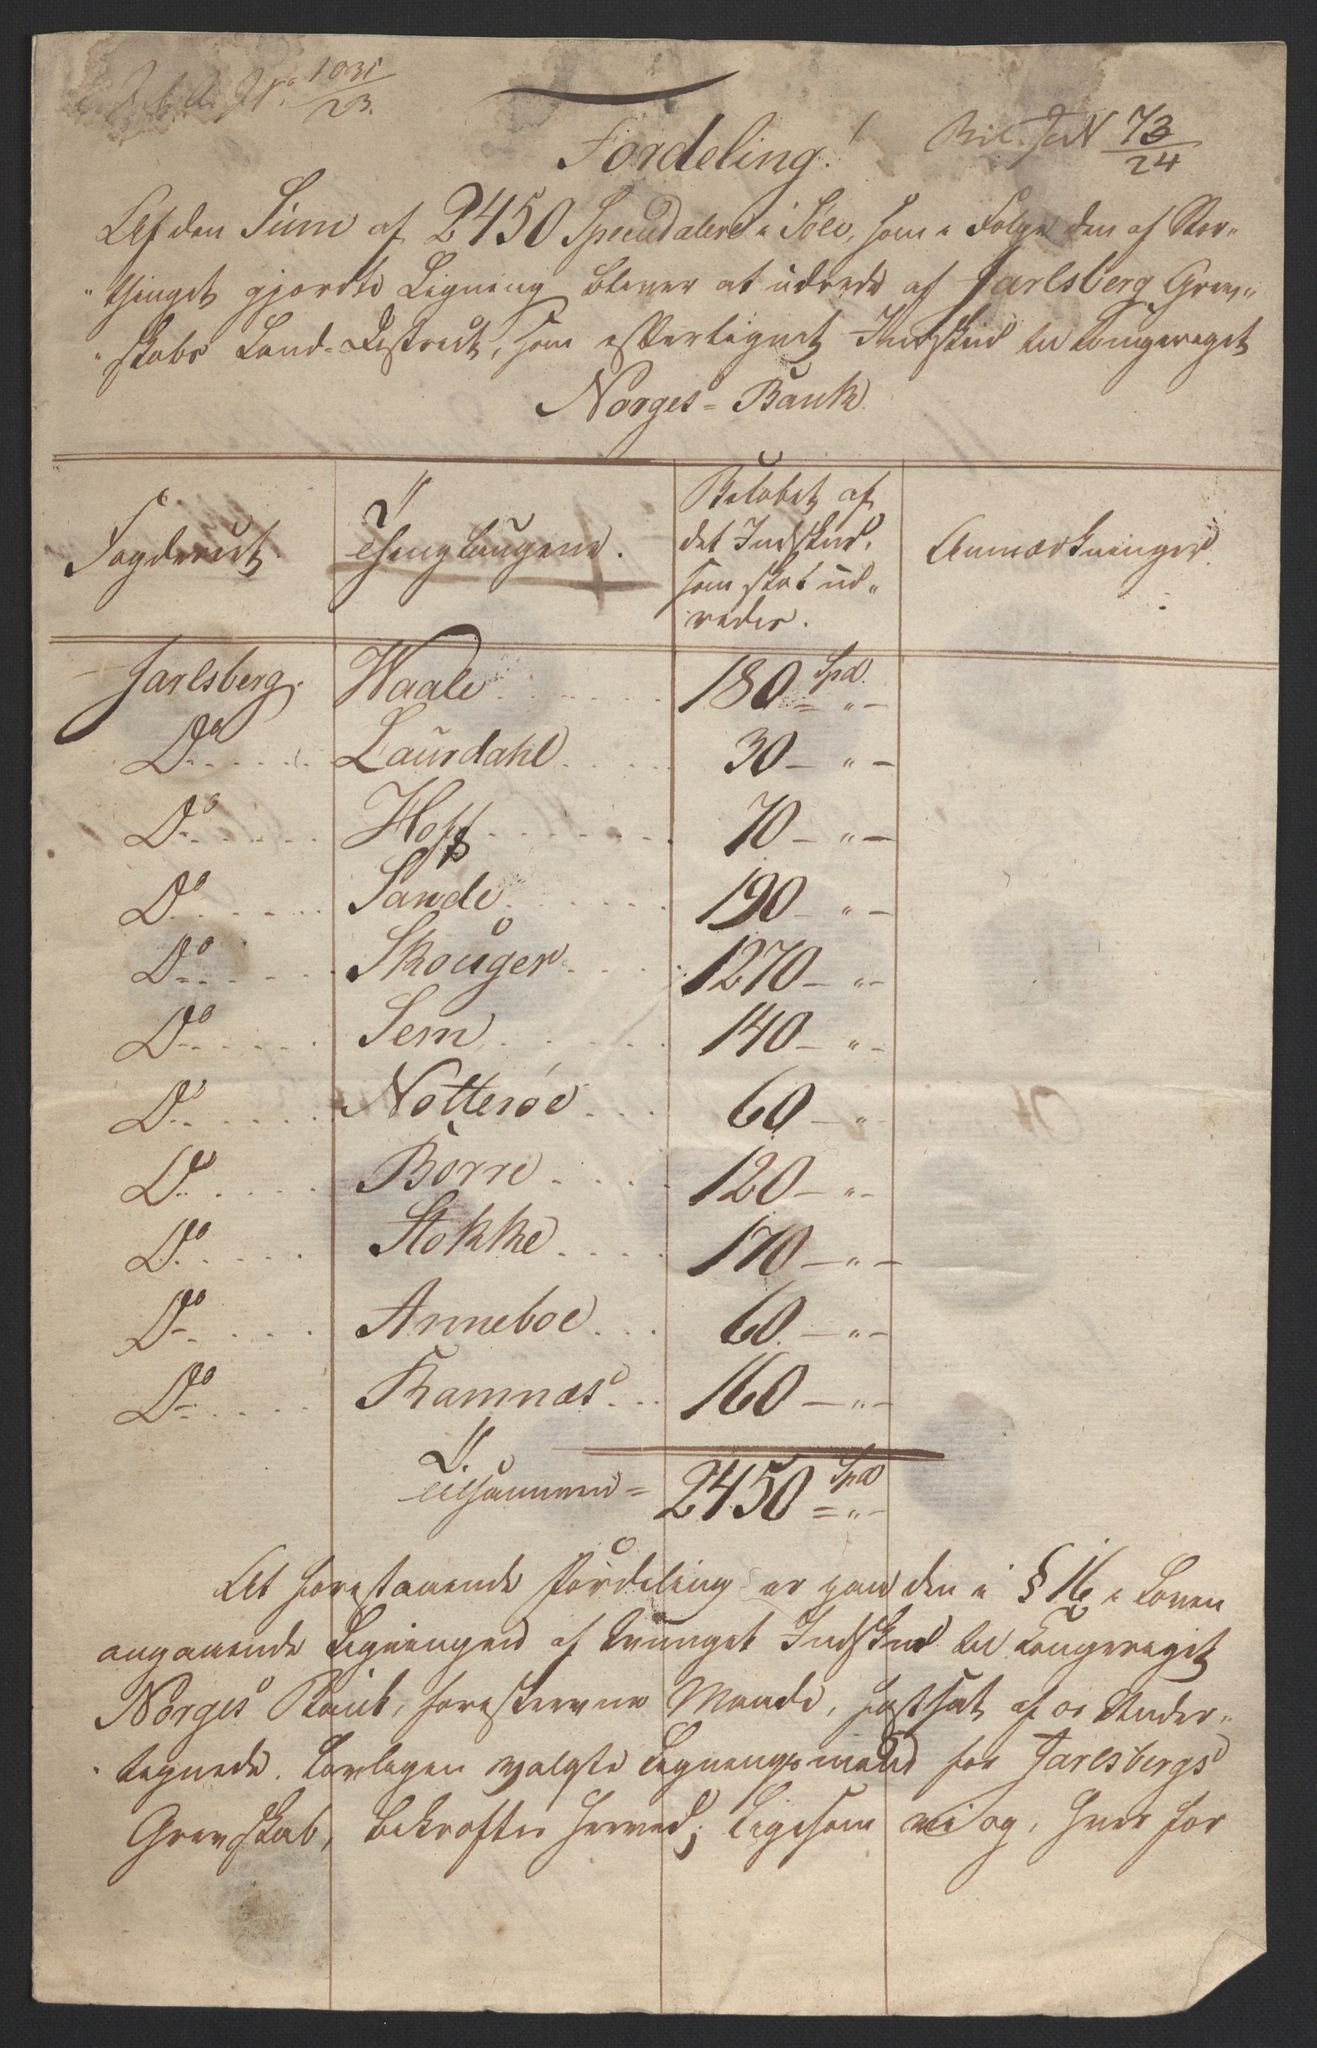 No 1031/23.
Bil. JoN 73/24
Fordeling!
Af den Sum af 2450 Speciedalere i Sølv, som i Følge den af Stor-
thinget gjordte Ligning bliver at udrede af Jarlsberg Grev-
skabs Land-District, som efterlignet Indskud til Kongeriget
Norges-Bank.
Fogderiet. Thinglaugene. Beløbet af det Indskud, som skal ud-redes. Anmærkninger.
Jarlsberg. Waale 180 Spd. = "-
Do Laurdahl 30 - " -
Do Hoff 70 - " -
Do Sande 190 - " -
Do Skouger 1270 - " -
Do Sem 140 - " -
Do Nøtterøe 60 - " -
Do Børre 120 - " -
Do Stokke 170 - " -
Do Anneboe 60 - " -
Do Ramnæs 160 - " -
Tilsammen = 2450 Spd = " -
At forestaaende Fordeling er paa den i § 16 i Loven
angaaende Ligningen af tvunget Indskud til Kongeriget
Norges Bank, foreskrevne Maade, fastsat af os Under-
tegnede lovligen valgte Ligningsmænd for Jarlsbergs
Grevskab, bekræftes herved; ligesom vi og, hver for